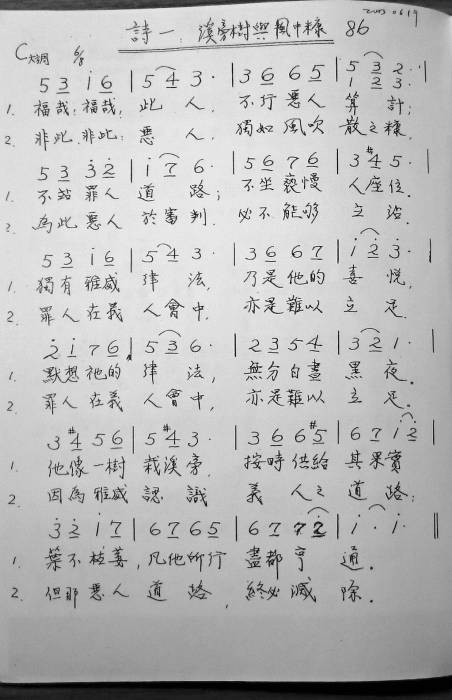 2003 06 19
詩一: 溪旁樹與風中糠 86
C大調 6/8
5 3 1 6 | 5 4 3 · | 3 6 6 5 | 5 3 2 · |
1 2 3 ·
1. 福哉, 福哉, 此 人, 不行惡人 算 計;
2. 非此, 非此, 惡 人, 獨如風吹 散之糠,
5 3 3 2 | 1 7 6 · | 5 6 7 6 | 3 #4 5 · |
1. 不站罪人 道 路; 不坐褻慢 人座位.
2. 為此惡人 於審判, 必不能夠 立沾.
5 3 1 6 | 5 4 3 · | 3 6 6 7 | 1 2 3 · |
1. 獨有雅威 律 法, 乃是他的 喜 悅,
2. 罪人在義 人會中, 亦是難以 立 足.
2 1 7 6 | 5 3 6 · | 2 3 5 4 | 3 2 1 · |
1. 默想祂的 律 法, 無分白晝 黑 夜.
2. 罪人在義 人會中, 亦是難以 立 足.
3 #4 5 6 | 5 #4 3 · | 3 6 6 #5 | 6 7 1 2 |
1. 他像一樹 栽溪帝, 按時供給 其果實
2. 因為雅威 認 識 義 人之 道 路;
3 2 1 7 | 6 7 6 5 | 6 7 7 2 | 1 · 1 · ||
1. 葉不枝萎, 凡他所行 盡都亨 通.
2. 但那惡人 道 路, 終必滅 除.